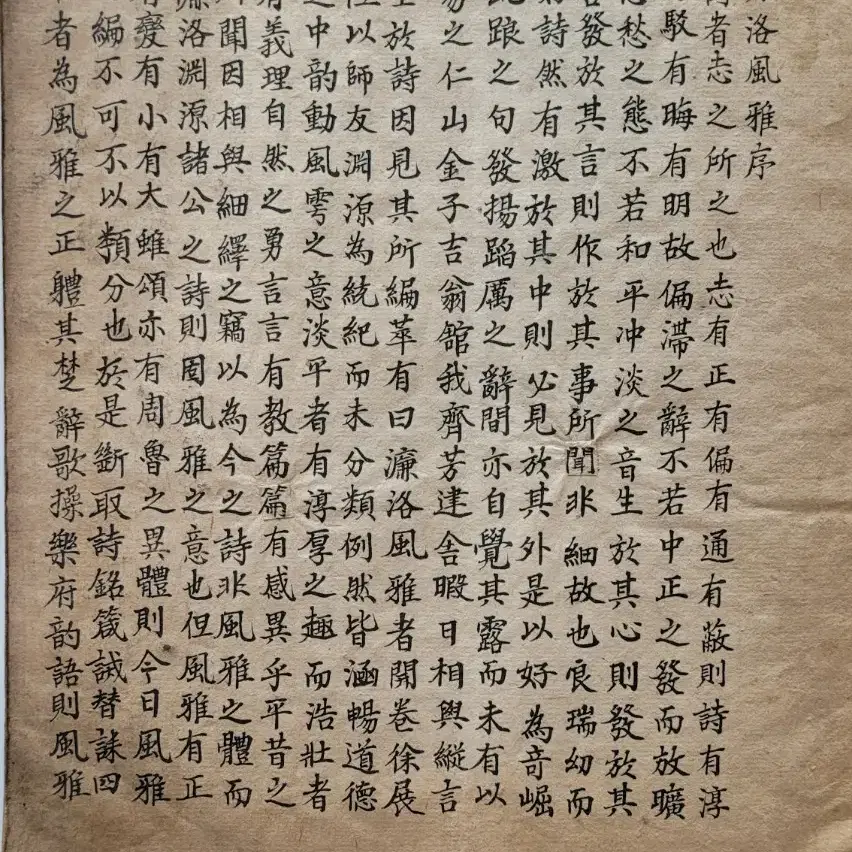 洛風雅序
者志之所之也志有正有偏有通有蔽則詩有淳
駁有晦有明故偏滯之辭不若中正之發而放曠
愁之態不若和平冲淡之音生於其心則發於其
發於其言則作於其事所聞非細故也良瑞幼而
詩然有激於其中則必見於其外是以好為奇崛
踉之句發揚蹈厲之辭間亦自覺其露而未有以
之仁山金子吉翁舘我齊芳建舍暇日相與縱言
於詩因見其所編萃有曰濂洛風雅者開卷徐展
以師友淵源為統紀而未分類例然皆涵暢道德
之中韵動風雩之意淡平者有淳厚之趣而浩壯者
有義理自然之勇言言有教篇篇有感異乎平昔之
聞因相與細繹之竊以為今之詩非風雅之體而
濂洛淵源諸公之詩則固風雅之意也但風雅有正
有變有小有大雖頌亦有周魯之異體則今日風雅
編不可不以類分也於是斷取詩銘箴誡賛誄四
者為風雅之正軆其楚辭歌操樂府韵語則風雅